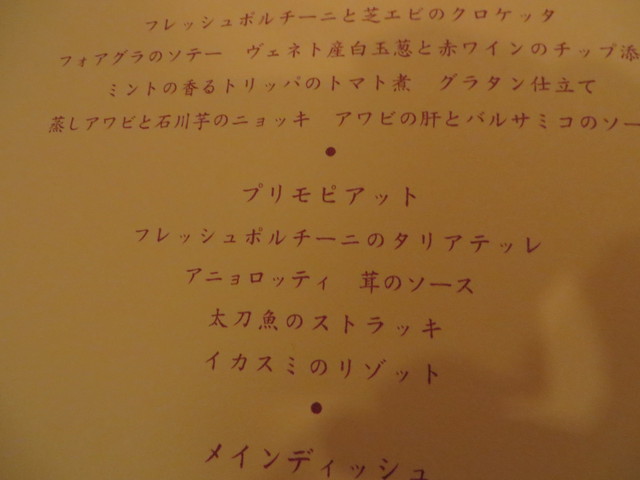 フレッシュポルチーニと芝エビのクロケッタ
フォアグラのソテー　ヴェネト産白玉葱と赤ワインのチップ添
ミントの香るトリッパのトマト煮　グラタン仕立て
蒸しアワビと石川芋のニョッキ　アワビの肝とバルサミコのソー
●
プリモピアット
フレッシュポルチーニのタリアテッレ
アニョロッティ　茸のソース
太刀魚のストラッキ
イカスミのリゾット
●
メインディッシュ